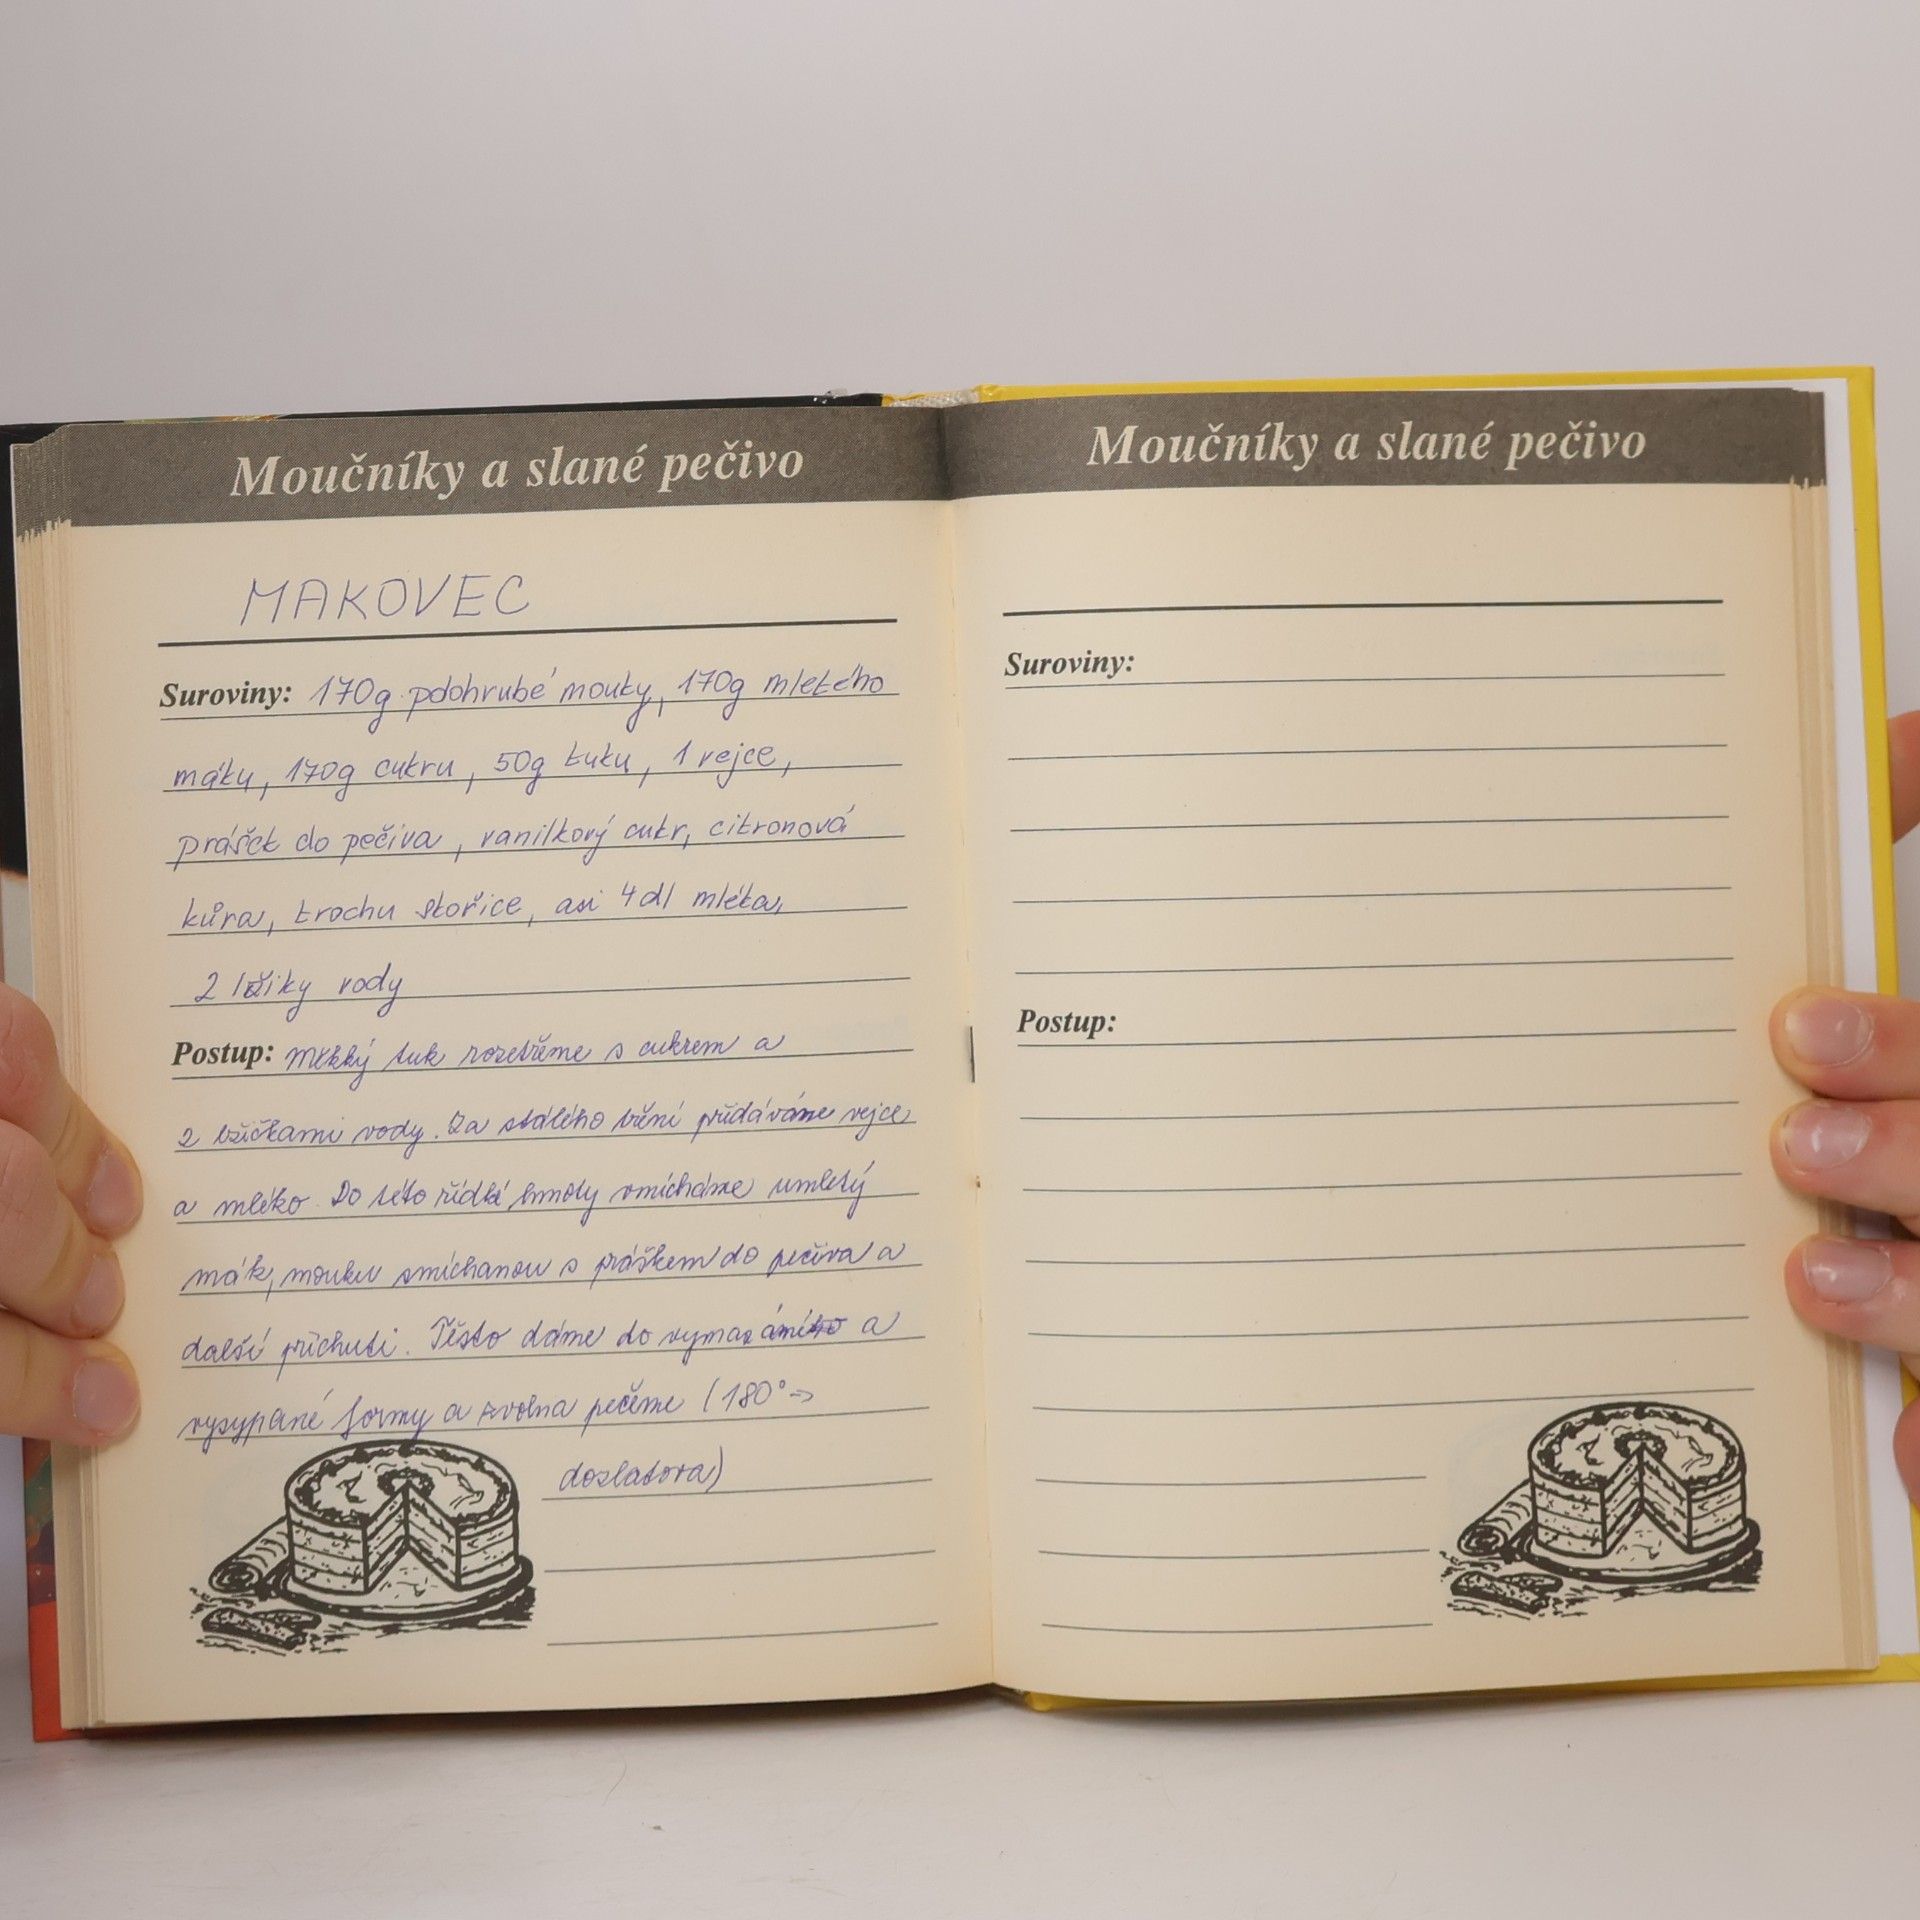 Moučníky a slané pečivo
MAKOVEC
Suroviny: 170g pdohrubé mouky, 170g mletého
máku, 170g cukru, 50g tuku, 1 vejce,
prášek do pečiva, vanilkový cukr, citronová
kůra, trochu skořice, asi 4dl mléka,
2 lžiky vody
Postup: Měkký tuk rozetřeme s cukrem a
2 lžičkami vody. Za stálého tření přidáváme vejce
a mléko. Do této řídké hmoty vmícháme umletý
mák, mouku smíchanou s práškem do pečiva a
další příchuti. Těsto dáme do a
vysypané formy a zvolna pečeme (180°->
dozlatova)
Moučníky a slané pečivo
Suroviny:
Postup: